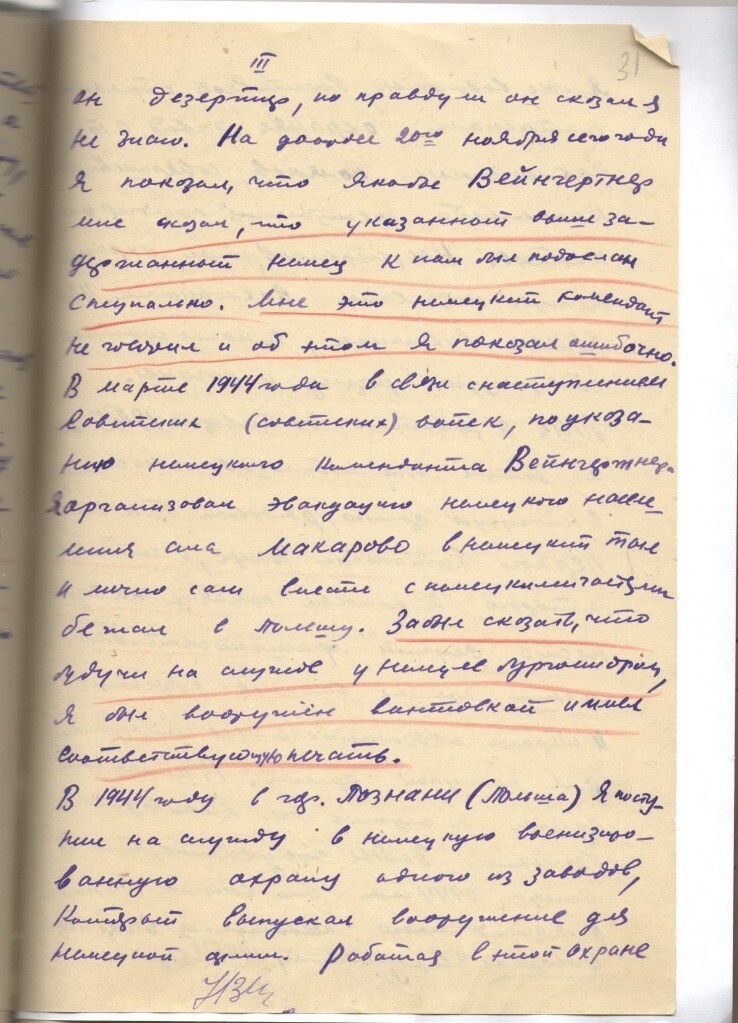 III
31
он дезертир, но правду ли он сказал я
не знаю. На допросе 20го ноября сего года
я показал, что Якобе Вейнгертнер
мне сказал, что указанный выше за-
держанный немец к нам был подослан
специально. Мне это немецкий комендант
не говорил и об этом я показал ошибочно.
В марте 1944 года в связи с наступлением
Советских (советских) войск, по указа-
нию немецкого коменданта Вейнгертнера
я организовал эвакуацию немецкого насе-
ления села Макарово в немецкий тыл
и лично сам вместе с немецкими частями
бежал в Польшу. Забыл сказать, что
будучи на службе у немцев бургомистром,
я был вооружен винтовкой и имел
соответствующую печать.
В 1944 году в гор. Познани (Польша) я посту-
пил на службу в немецкую военизиро-
ванную охрану одного из заводов,
который выпускал вооружение для
немецкой армии. Работая в этой охране